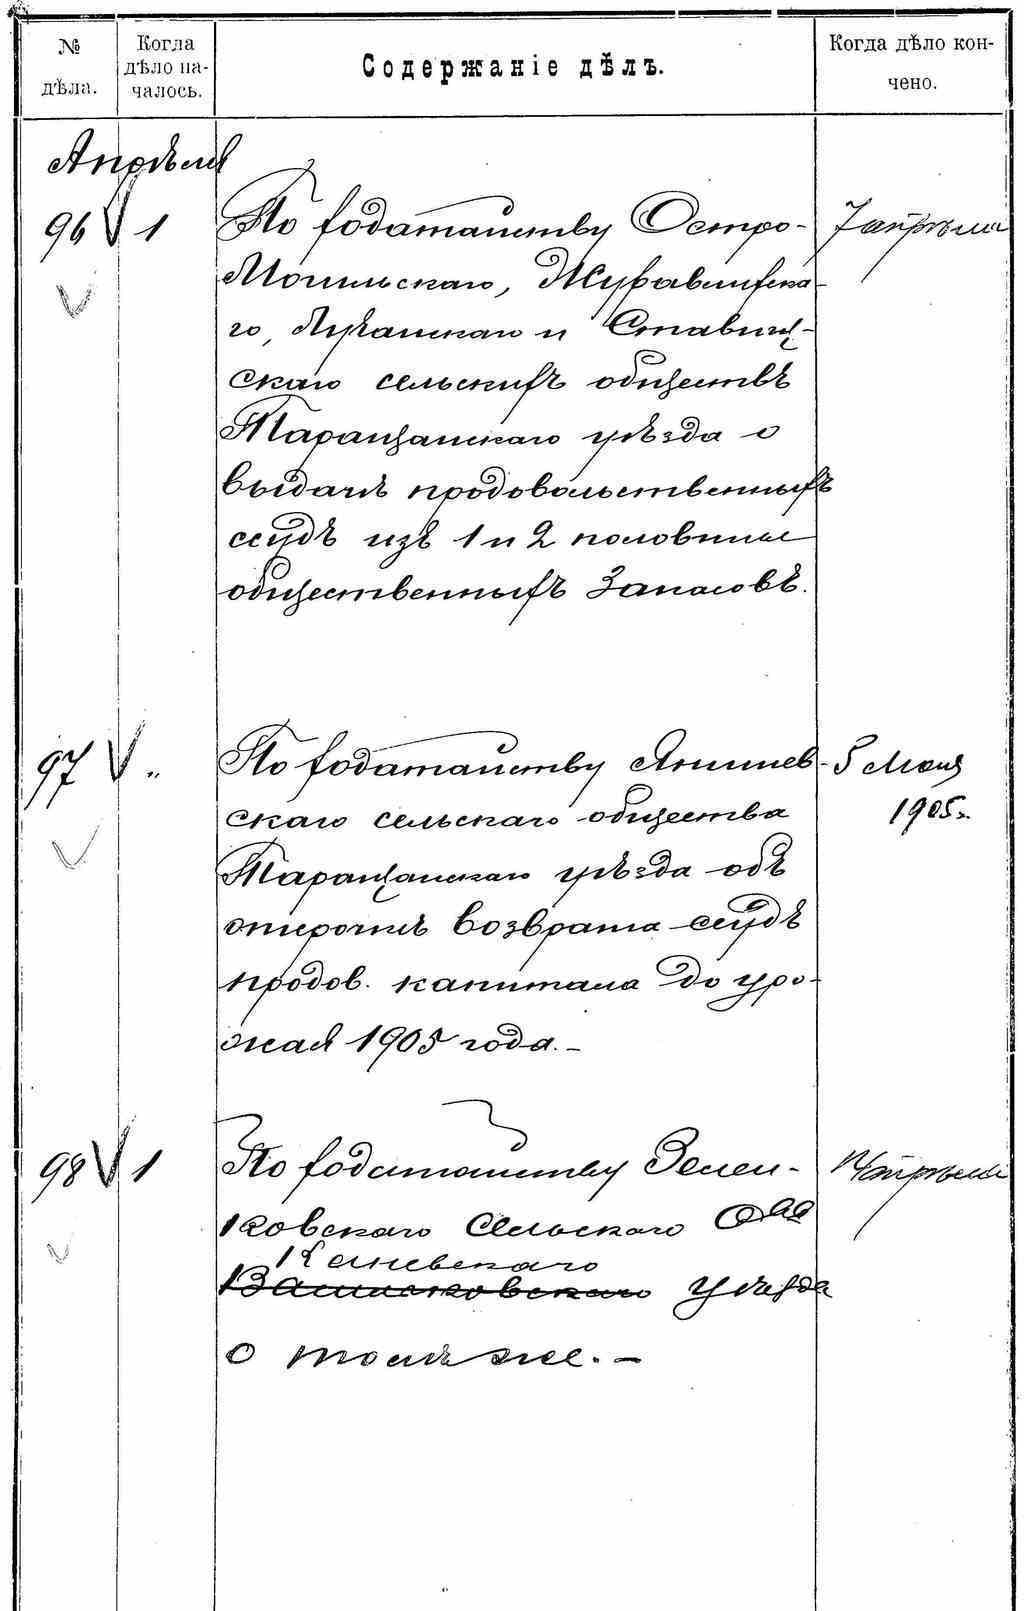 № дѣла.
Когда дѣло на-
чалось.
Содержаніе дѣлъ.
Когда дѣло кон-
чено.
Апрѣля
96 1 По ходатайству Остро- 7 апрѣля
Могильскаго, Журавлихска-
го, Лучанскаго и Ставищ-
скаго сельскихъ обществъ
Таращанскаго уѣзда о
выдачѣ продовольственныхъ
ссудъ изъ 1 и 2 половины
общественныхъ запасовъ.
97 „ По ходатайству Янишев- 5 Мая
скаго сельскаго общества 1905г.
Таращанскаго уѣзда объ
отсрочкѣ возврата ссудъ
продов. капитала до уро-
жая 1905 года. –
98 1 По ходатайству Зелень- апрѣля
ковскаго Сельскаго О-ва
Каневскаго
Васильковскаго уѣзда
о томъ же. –